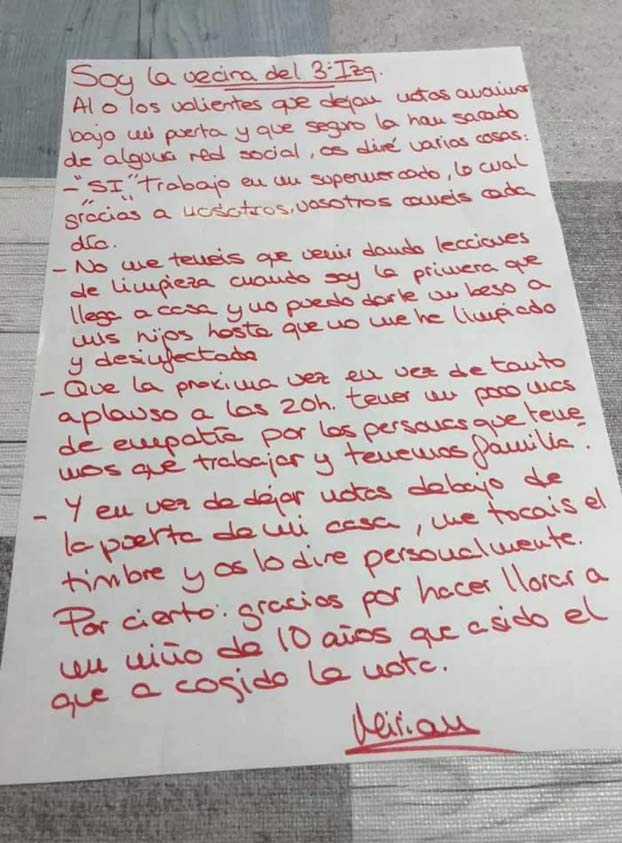 Soy la vecina del 3º Izq.
Al o los valientes que dejan notas anonimas
bajo mi puerta y que seguro la han sacado
de alguna red social, os diré varias cosas:
- "SI" Trabajo en un supermercado, lo cual
gracias a "nosotros", vosotros comeis cada
día.
- No me teneis que venir dando lecciones
de limpieza cuando soy la primera que
llega a casa y no puedo darle un beso a
mis hijos hasta que no me he limpiado
y desinfectado
- Que la proxima vez en vez de tanto
aplauso a las 20h. tener un poco mas
de empatía por las personas que tene
mos que trabajar y tenemos familia.
- Y en vez de dejar notas debajo de
la puerta de mi casa, me tocais el
timbre y os lo dire personalmente.
Por cierto: gracias por hacer llorar a
un niño de 10 años que a sido el
que a cogido la nota.
Miriam